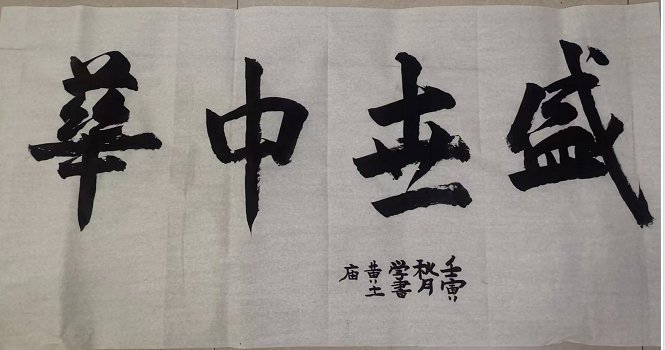 盛世中華
壬寅
秋月
学書
黄土
庙